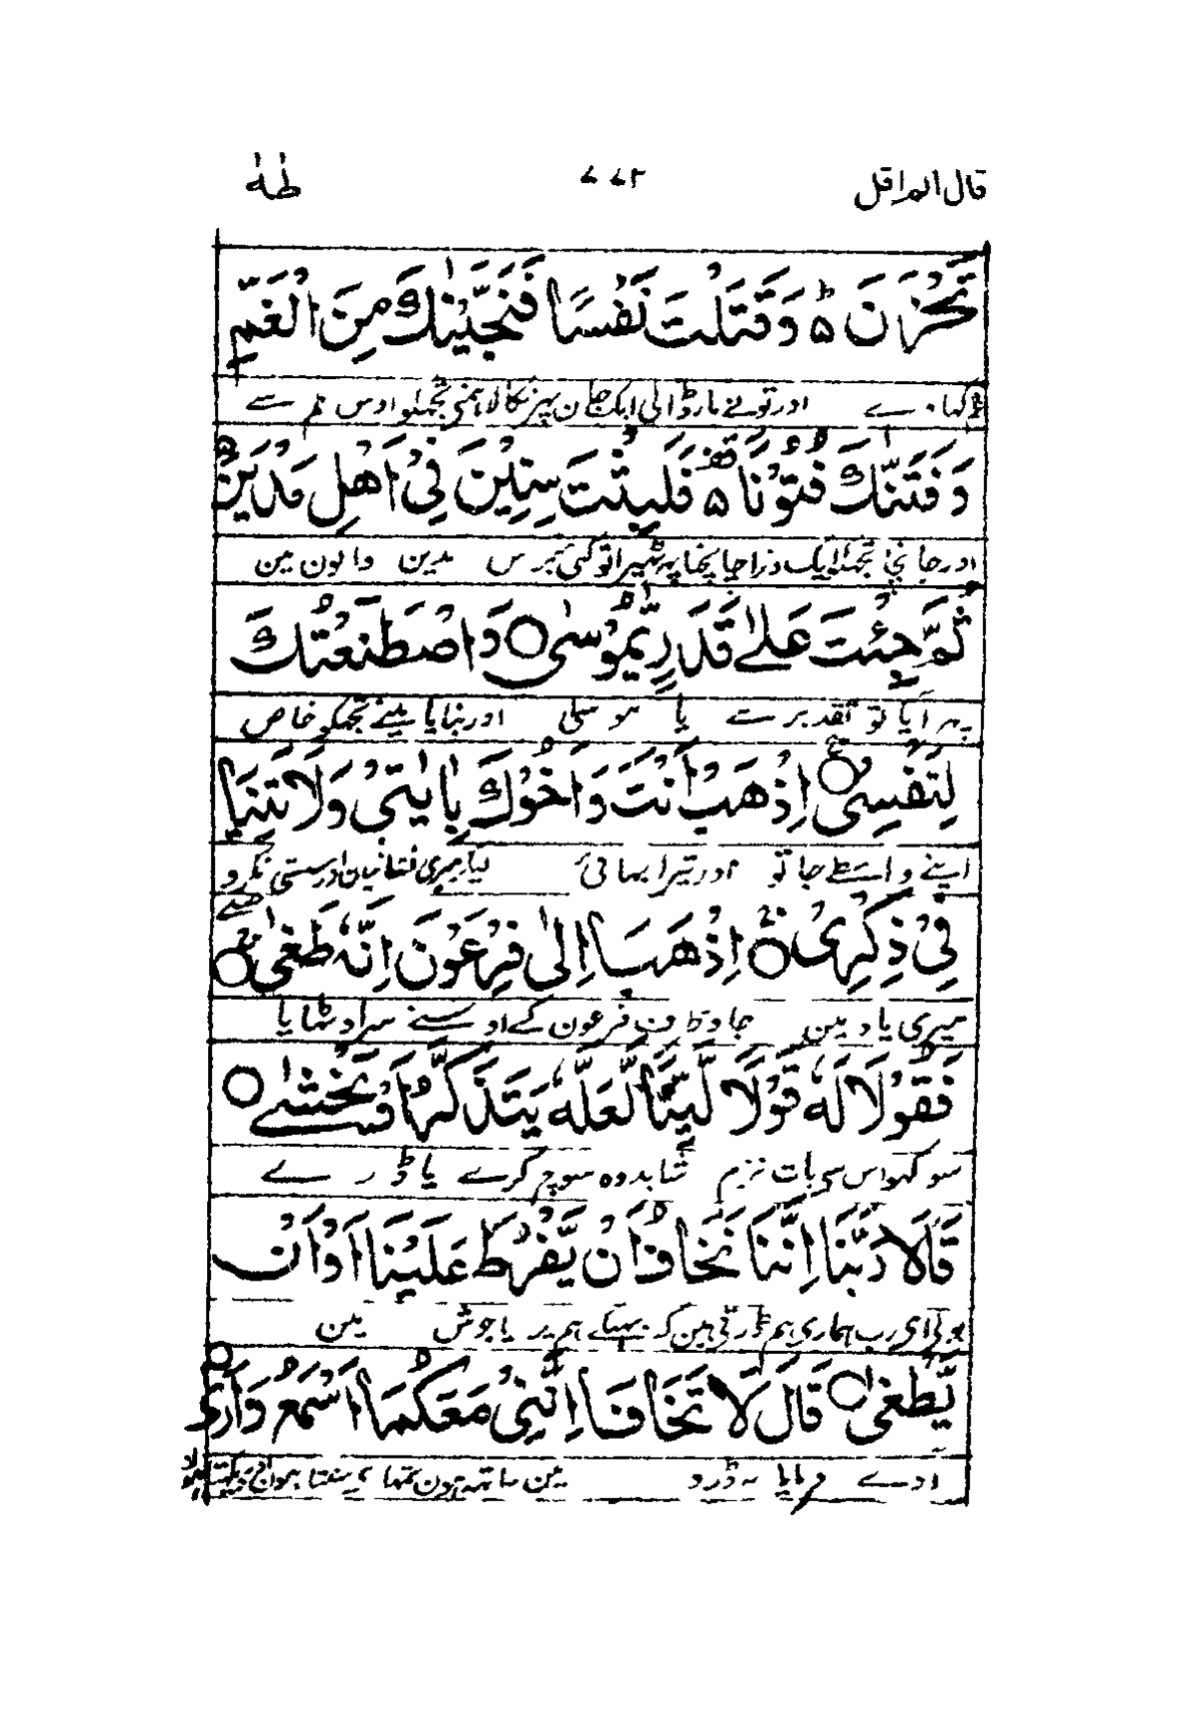 قال الم اقل ۷۷۲ طٰهٰ
تَحْزَنَ ۵ؕ وَقَتَلْتَ نَفْسًا فَنَجَّيْنٰكَ مِنَ الْغَمِّ
کھاوے اور تونے مار ڈالی ایک جان پہر نکالا ہمنے تجھکو اوس غم سے
وَفَتَنّٰكَ فُتُوْنًا ۵ فَلَبِثْتَ سِنِيْنَ فِيْٓ اَهْلِ مَدْيَنَ
اور جانچا تجھکو ایک ذرا جانچنا پہر ٹھیرا تو کئی برس مدین والون مین
ثُمَّ جِئْتَ عَلٰى قَدَرٍ يّٰمُوْسٰى ○ وَاصْطَنَعْتُكَ
پہر آیا تو تقدیر سے یا موسیٰ اور بنایا مینے تجھکو خاص
لِنَفْسِيْ ○ اِذْهَبْ اَنْتَ وَاَخُوْكَ بِاٰيٰتِيْ وَلَا تَنِيَا
اپنے واسطے جا تو اور تیرا بہائی لیکر میری نشانیان اور سستی نکرو
فِيْ ذِكْرِيْ ○ اِذْهَبَآ اِلٰى فِرْعَوْنَ اِنَّهٗ طَغٰى ○
میری یاد مین جاو طرف فرعون کے اوسنے سر اوٹھایا
فَقُوْلَا لَهٗ قَوْلًا لَّيِّنًا لَّعَلَّهٗ يَتَذَكَّرُ اَوْ يَخْشٰى ○
سو کہو اس سی بات نرم شاید وہ سوچ کرے یا ڈرے
قَالَا رَبَّنَآ اِنَّنَا نَخَافُ اَنْ يَّفْرُطَ عَلَيْنَآ اَوْ اَنْ
بولی ای رب ہماری ہم ڈرتی ہین کہ بہبکے ہم پر یا جوش مین
يَّطْغٰى ○ قَالَ لَا تَخَافَآ اِنَّنِيْ مَعَكُمَآ اَسْمَعُ وَاَرٰى ○
آوے فرمایا نہ ڈرو مین ساتھ ہون تمہاری سنتا ہون اور دیکھتا